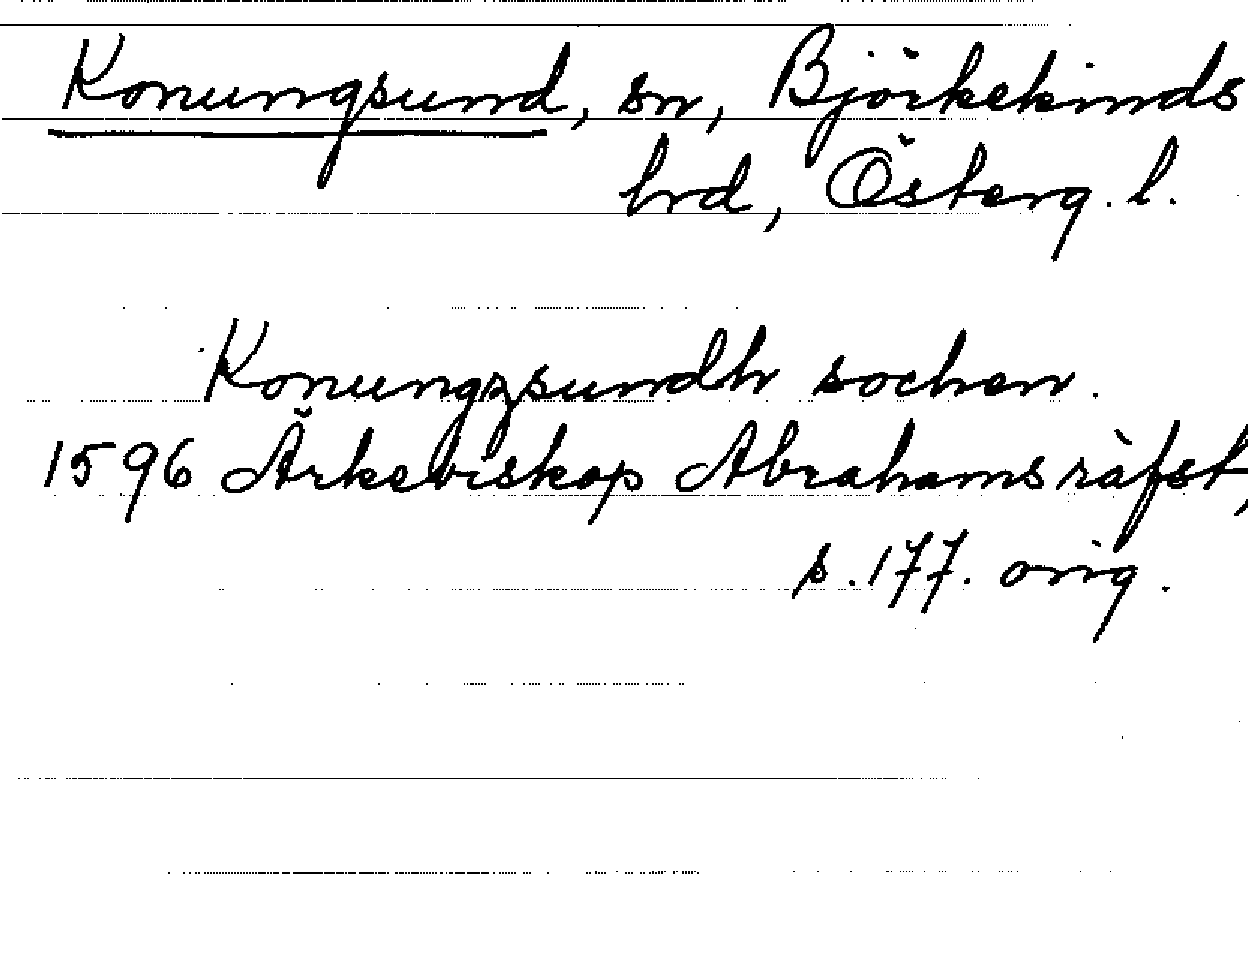 Konungsund, sn, Björkekinds
hrd, Österg. l.
Konungzsundh sochen.
1596 Ärkebiskop Abrahams räfst,
s. 177. orig.